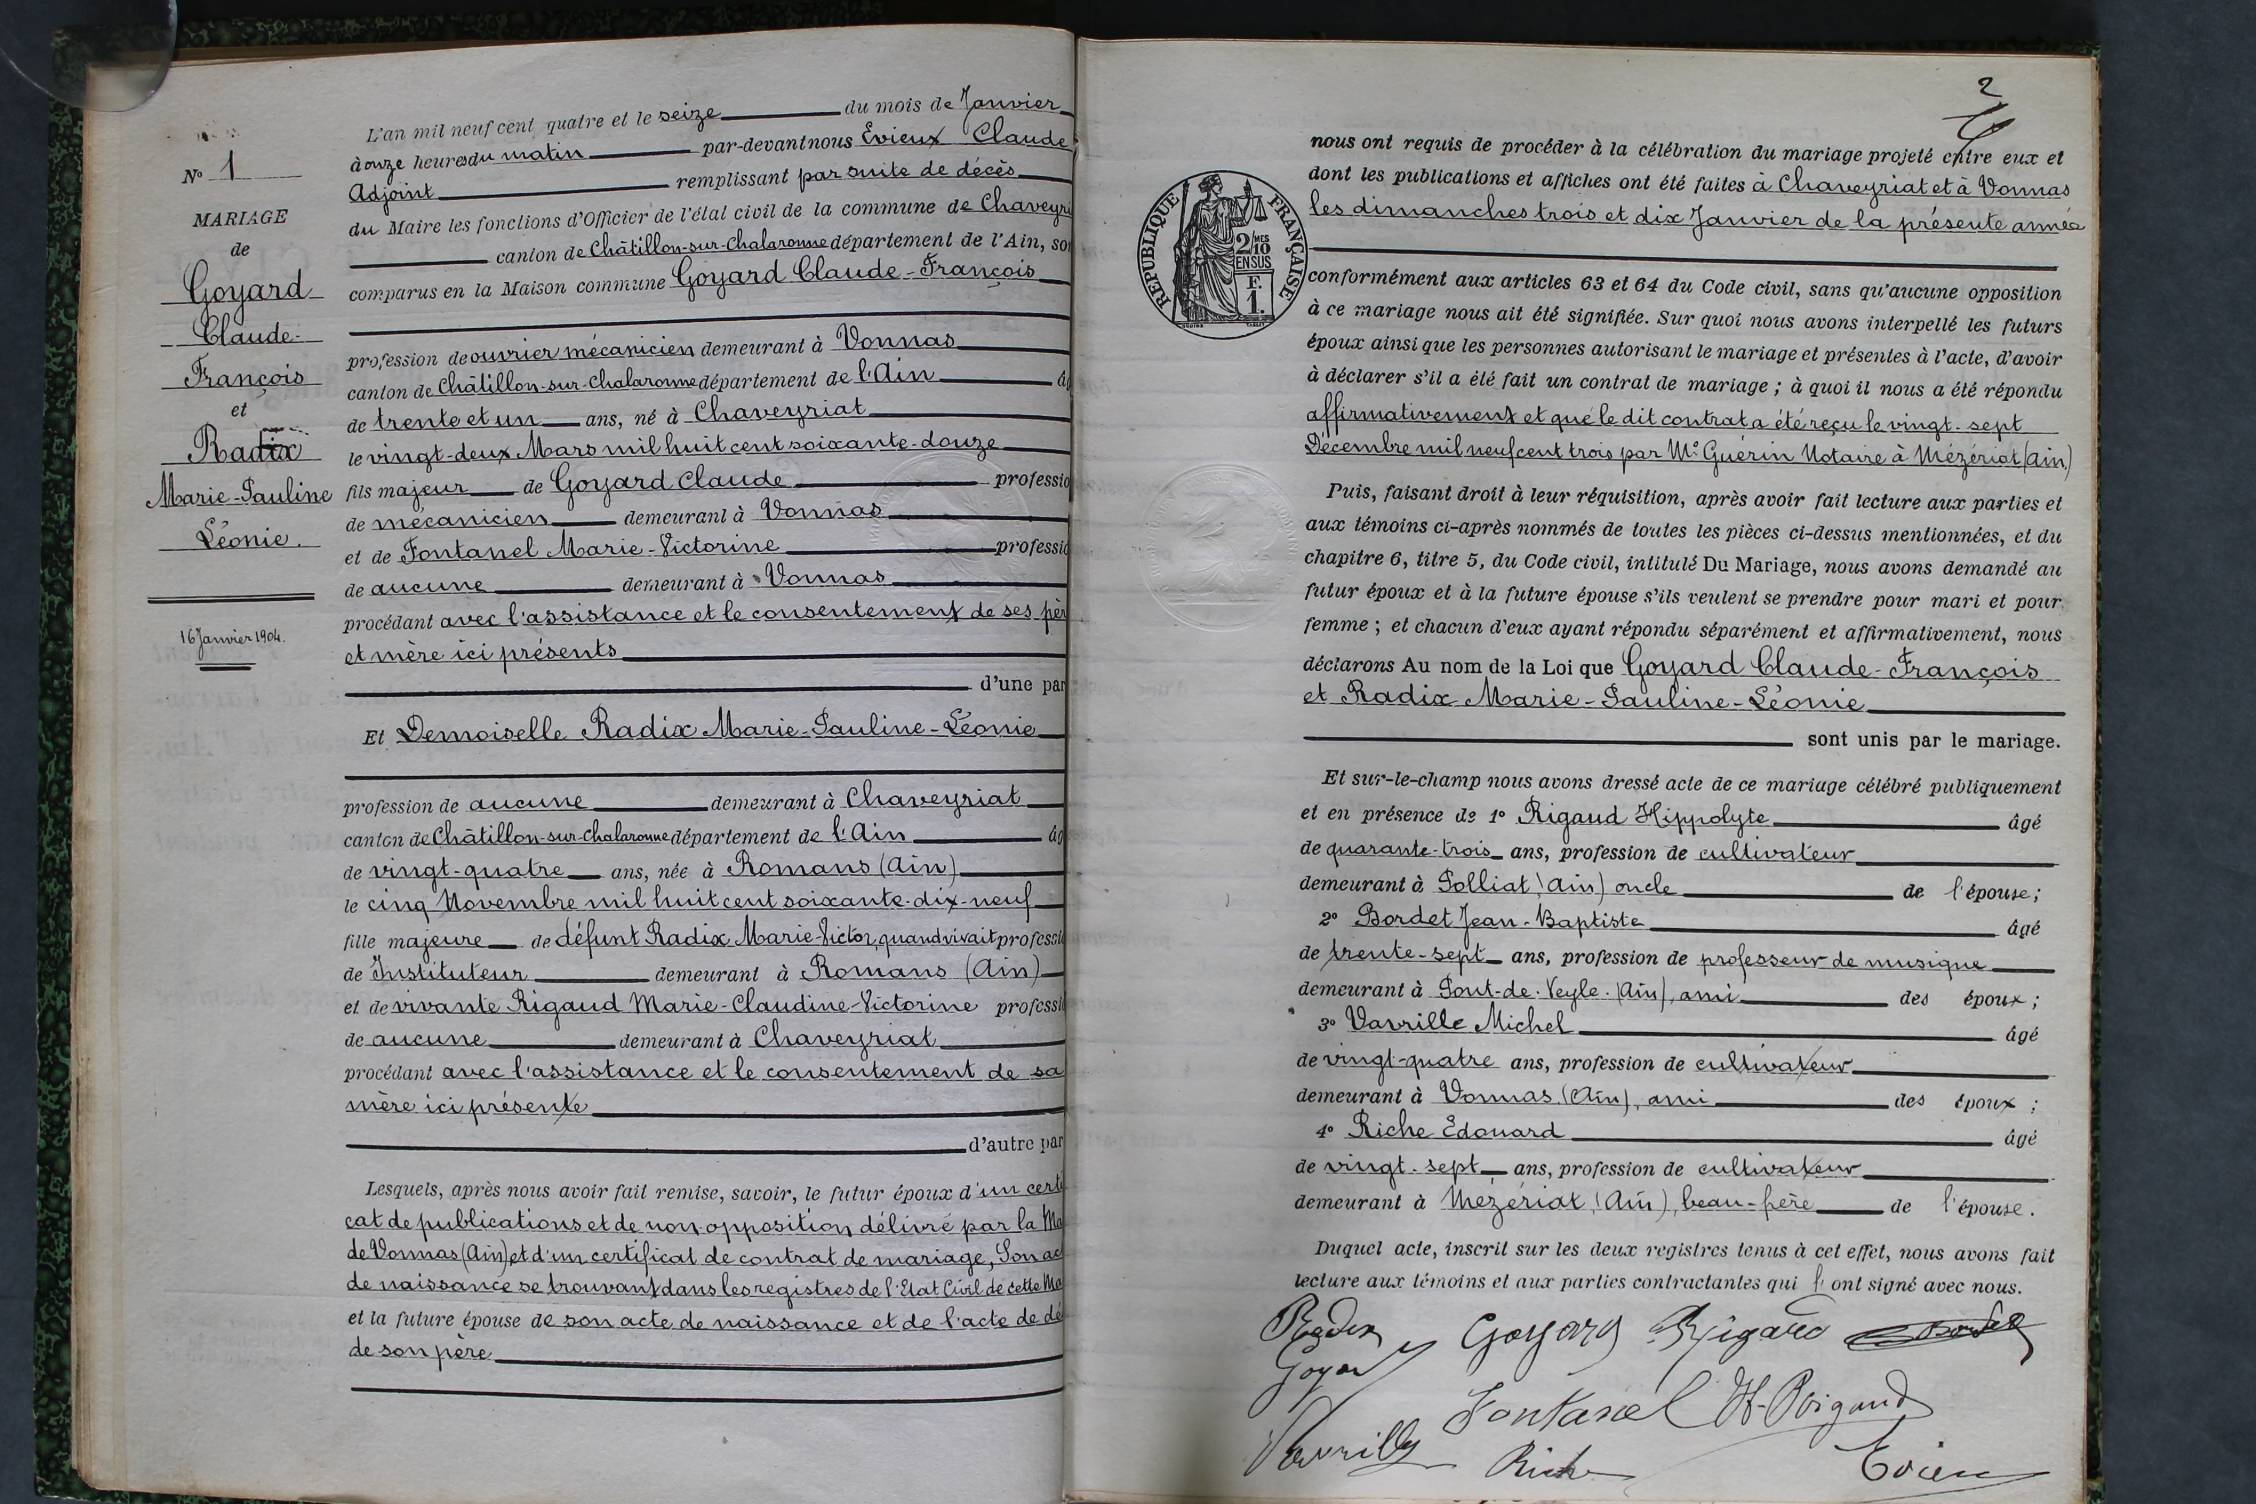 L'an mil neuf cent quatre et le seize du mois de Janvier
à onze heures du matin par-devant nous Evieux Claude
Adjoint remplissant par suite de décès
du Maire les fonctions d'Officier de l'état civil de la commune de Chaveyri
canton de Châtillon-sur-Chalaronne département de l'Ain, so
comparus en la Maison commune Goyard Claude-François
profession de ouvrier mécanicien demeurant à Vonnas
canton de Châtillon-sur-Chalaronne département de l'Ain âg
de trente et un ans, né à Chaveyriat
le vingt-deux Mars mil huit cent soixante-douze
fils majeur de Goyard Claude professio
de mécanicien demeurant à Vonnas
et de Fontanel Marie-Victorine professio
de aucune demeurant à Vonnas
procédant avec l'assistance et le consentement de ses pèr
et mère ici présents
d'une par
Et Demoiselle Radix Marie-Pauline-Léonie
profession de aucune demeurant à Chaveyriat
canton de Châtillon-sur-Chalaronne département de l'Ain âg
de vingt-quatre ans, née à Romans (Ain)
le cinq Novembre mil huit cent soixante-dix-neuf
fille majeure de défunt Radix Marie-Victor, quand vivait professio
de Instituteur demeurant à Romans (Ain)
et de vivante Rigaud Marie-Claudine-Victorine professio
de aucune demeurant à Chaveyriat
procédant avec l'assistance et le consentement de sa
mère ici présente
d'autre par
Lesquels, après nous avoir fait remise, savoir, le futur époux d'un certi
cat de publications et de non-opposition délivré par la Ma
de Vonnas (Ain) et d'un certificat de contrat de mariage, Son ac
de naissance se trouvant dans les registres de l'Etat Civil de cette Ma
et la future épouse de son acte de naissance et de l'acte de dé
de son père
N° 1
MARIAGE
de
Goyard
Claude-
François
et
Radix
Marie-Pauline
Léonie.
16 Janvier 1904.
2
nous ont requis de procéder à la célébration du mariage projeté entre eux et
dont les publications et affiches ont été faites à Chaveyriat et à Vonnas
les dimanches trois et dix Janvier de la présente année
RÉPUBLIQUE FRANÇAISE
2/10 MES
EN SUS
F.
1.
conformément aux articles 63 et 64 du Code civil, sans qu'aucune opposition
à ce mariage nous ait été signifiée. Sur quoi nous avons interpellé les futurs
époux ainsi que les personnes autorisant le mariage et présentes à l'acte, d'avoir
à déclarer s'il a été fait un contrat de mariage ; à quoi il nous a été répondu
affirmativement et que le dit contrat a été reçu le vingt-sept
Décembre mil neuf cent trois par Me Guérin Notaire à Mézériat (Ain)
Puis, faisant droit à leur réquisition, après avoir fait lecture aux parties et
aux témoins ci-après nommés de toutes les pièces ci-dessus mentionnées, et du
chapitre 6, titre 5, du Code civil, intitulé Du Mariage, nous avons demandé au
futur époux et à la future épouse s'ils veulent se prendre pour mari et pour
femme ; et chacun d'eux ayant répondu séparément et affirmativement, nous
déclarons Au nom de la Loi que Goyard Claude-François
et Radix Marie-Pauline-Léonie
sont unis par le mariage.
Et sur-le-champ nous avons dressé acte de ce mariage célébré publiquement
et en présence de 1° Rigaud Hippolyte âgé
de quarante-trois ans, profession de cultivateur
demeurant à Polliat (Ain) oncle de l'épouse ;
2° Bordet Jean-Baptiste âgé
de trente-sept ans, profession de professeur de musique
demeurant à Pont-de-Veyle (Ain), ami des époux ;
3° Vavrille Michel âgé
de vingt-quatre ans, profession de cultivateur
demeurant à Vonnas (Ain), ami des époux ;
4° Riche Edouard âgé
de vingt-sept ans, profession de cultivateur
demeurant à Mézériat (Ain), beau-frère de l'épouse.
Duquel acte, inscrit sur les deux registres tenus à cet effet, nous avons fait
lecture aux témoins et aux parties contractantes qui l'ont signé avec nous.
Radix Goyard Rigaud Bordet
Goyard
Fontanel H. Rigaud
Vavrille Riche Evieux